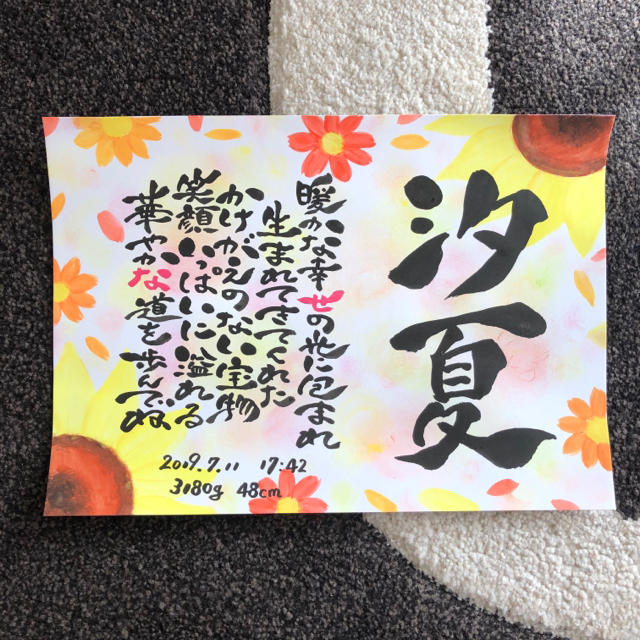 汐夏
暖かな幸世の花に包まれ
生まれてきてくれた
かけがえのない宝物
笑顔いっぱいに溢れる
華やかな道を歩んでね
2019.7.11 17:42
3180g 48cm